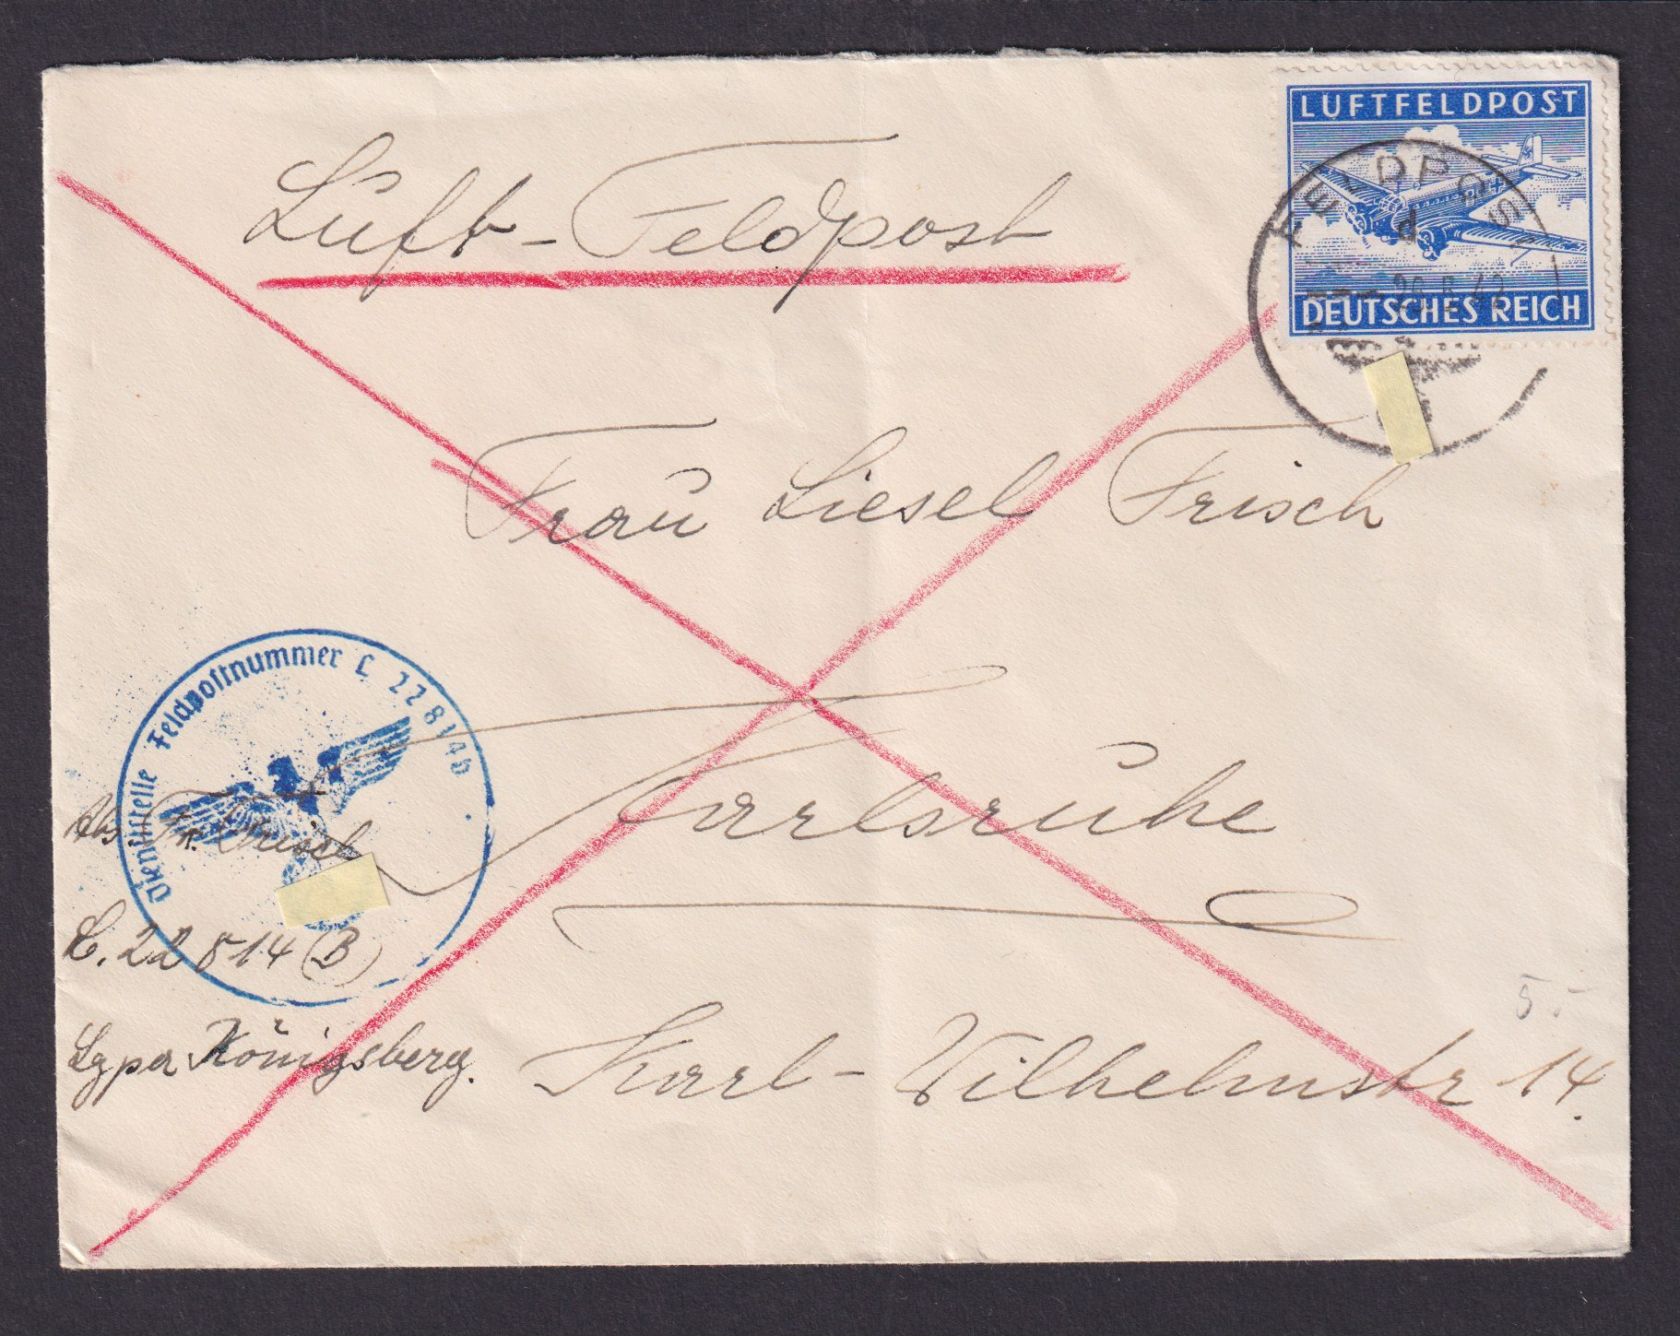 LUFTFELDPOST
DEUTSCHES REICH
FELDPOST
d
Luft-Feldpost
Frau Liesel Frisch
Karlsruhe
Karl-Wilhelmstr 14.
55
Dienststelle Feldpostnummer L 22814b
Abs. Fr.
L. 22814 (B)
Lgpa Königsberg.